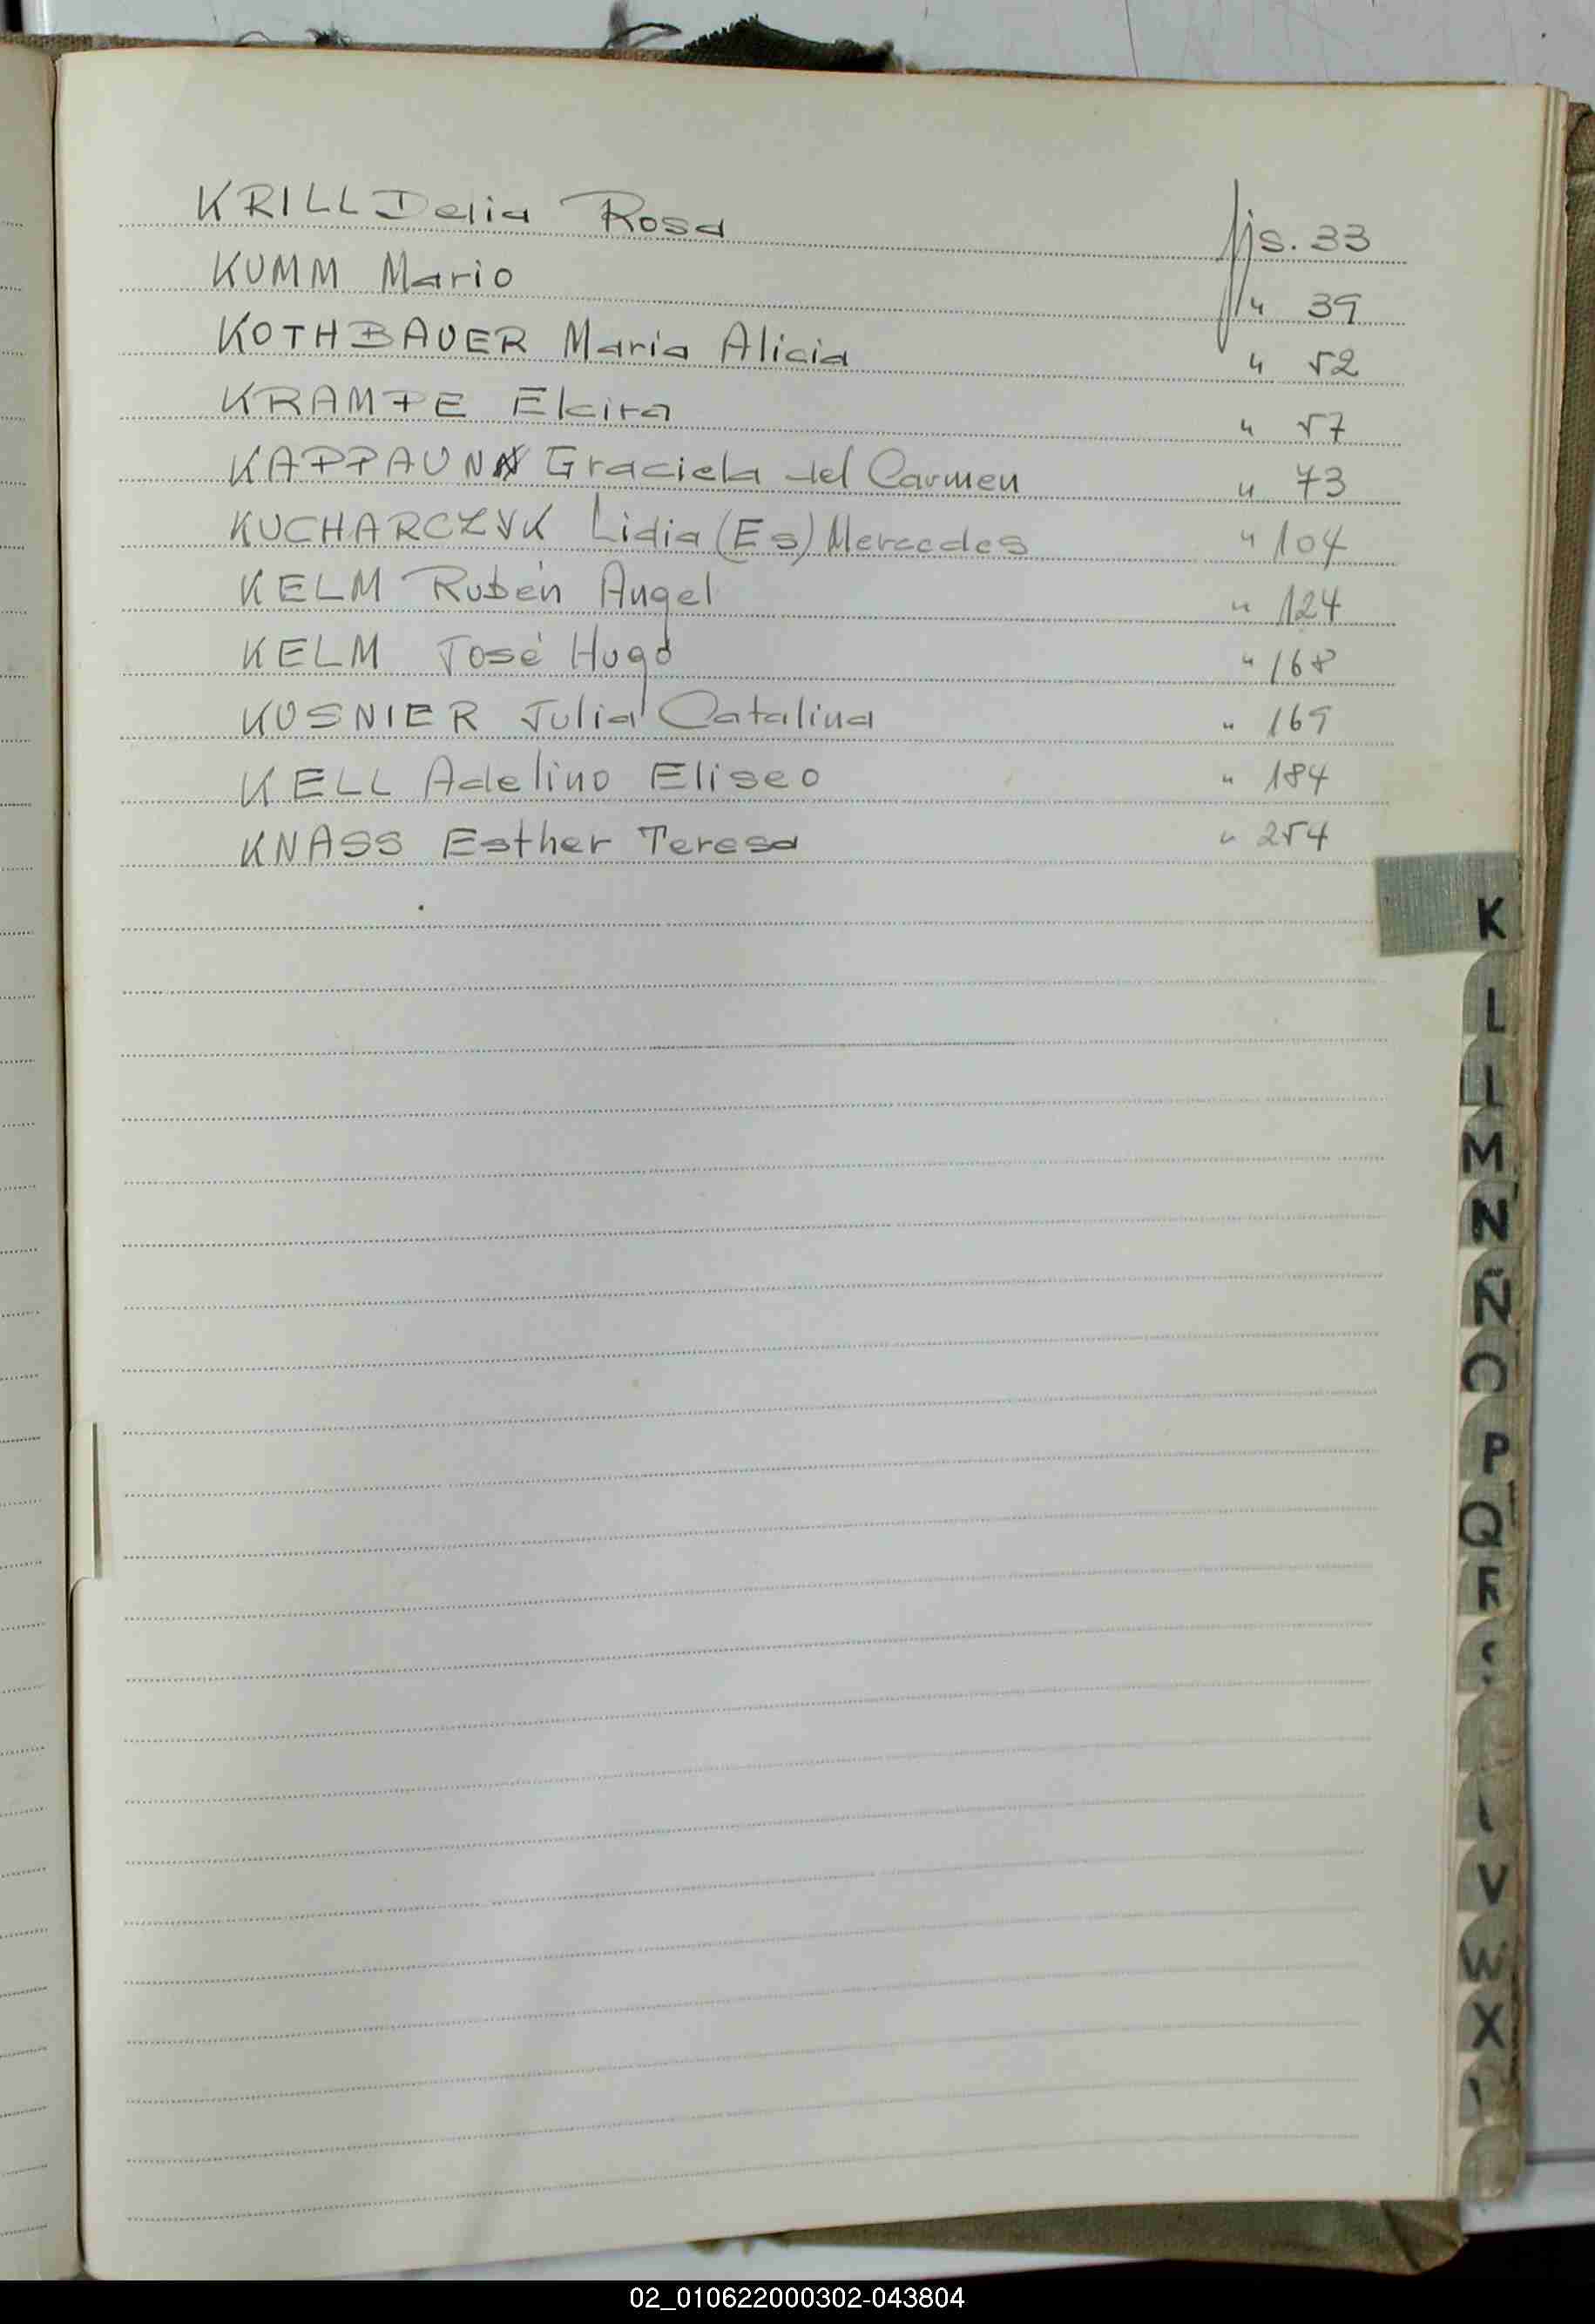 KRILL Delia Rosa fjs. 33
KUMM Mario " 39
KOTHBAUER Maria Alicia " 52
KRAMPE Elcira " 57
KAPPAUN Graciela del Carmen " 73
KUCHARCZYK Lidia (Es) Mercedes " 104
KELM Rubén Angel " 124
KELM José Hugo " 168
KUSNIER Julia Catalina " 169
KELL Adelino Eliseo " 184
KNASS Esther Teresa " 254
K
L
M
N
Ñ
O
P
Q
R
V
W
X
02_010622000302-043804